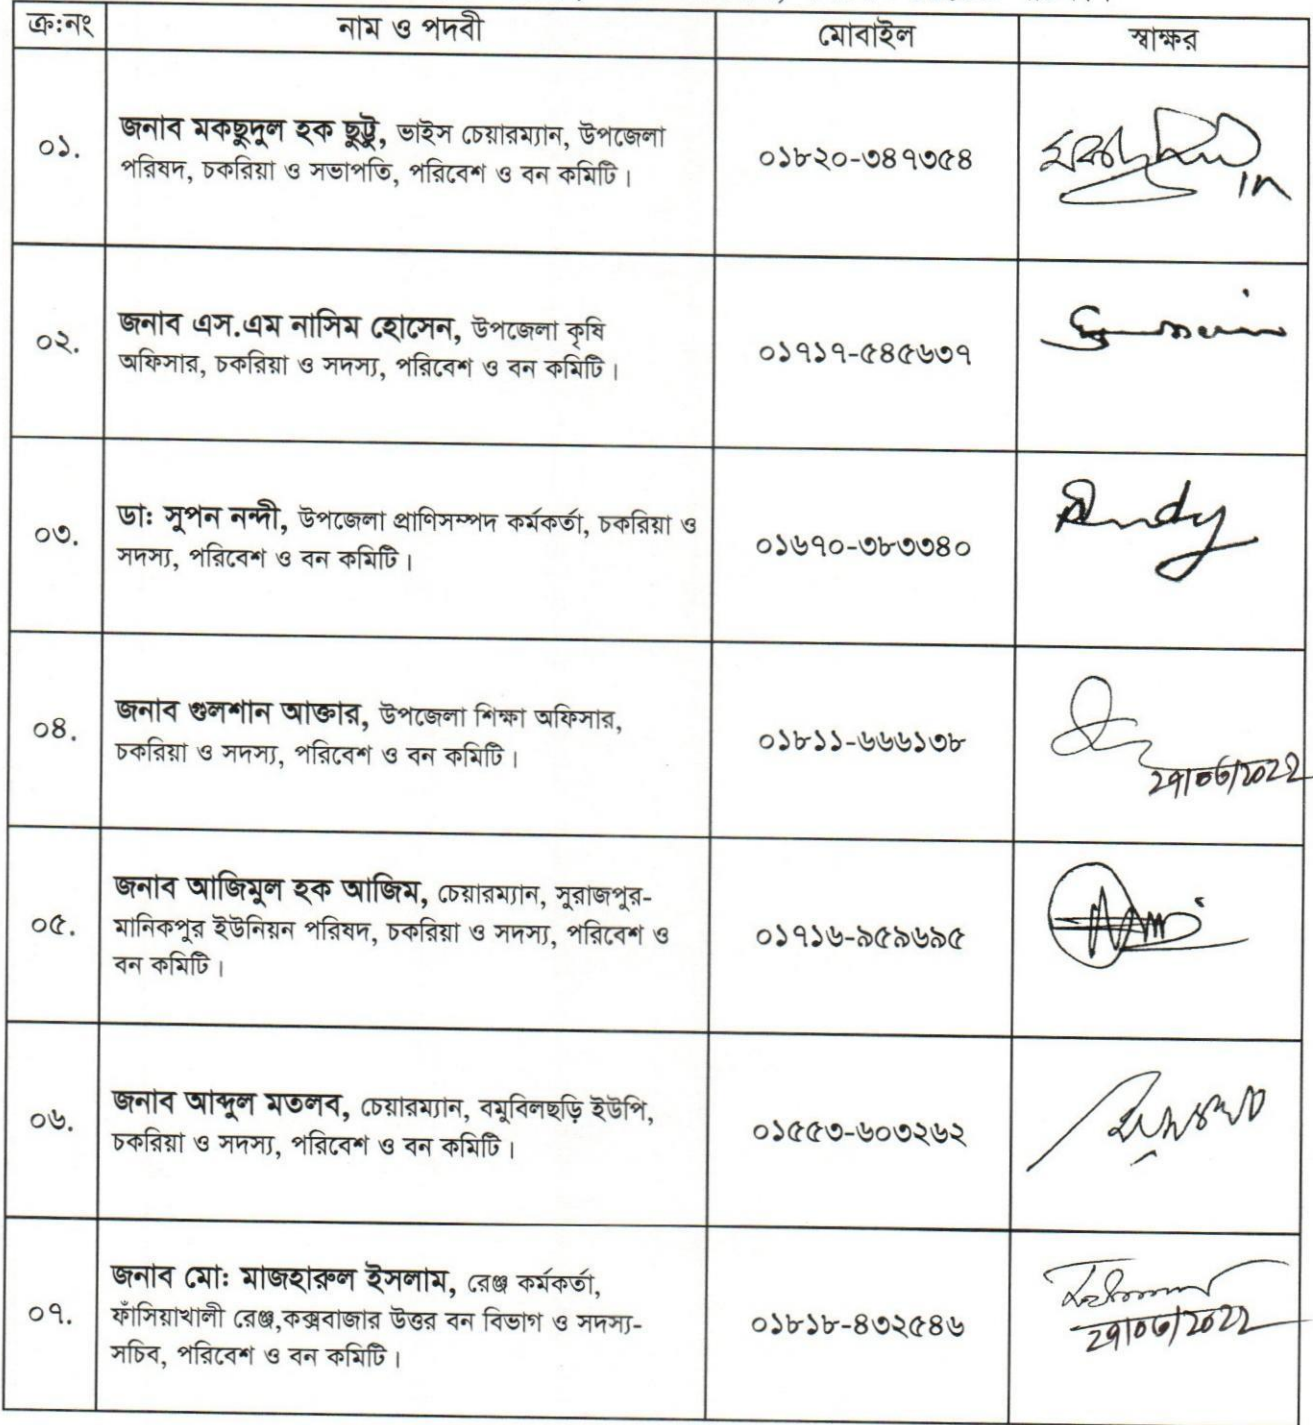 ক্র:নং নাম ও পদবী মোবাইল স্বাক্ষর
০১. জনাব মকছুদুল হক ছুট্টু, ভাইস চেয়ারম্যান, উপজেলা
পরিষদ, চকরিয়া ও সভাপতি, পরিবেশ ও বন কমিটি।
০১৮২০-৩৪৭৩৫৪
০২. জনাব এস.এম নাসিম হোসেন, উপজেলা কৃষি
অফিসার, চকরিয়া ও সদস্য, পরিবেশ ও বন কমিটি।
০১৭১৭-৫৪৫৬৩৭
০৩. ডা: সুপন নন্দী, উপজেলা প্রাণিসম্পদ কর্মকর্তা, চকরিয়া ও
সদস্য, পরিবেশ ও বন কমিটি।
০১৬৭০-৩৮৩৩৪০
০৪. জনাব গুলশান আক্তার, উপজেলা শিক্ষা অফিসার,
চকরিয়া ও সদস্য, পরিবেশ ও বন কমিটি।
০১৮১১-৬৬৬১৩৮
০৫. জনাব আজিমুল হক আজিম, চেয়ারম্যান, সুরাজপুর-
মানিকপুর ইউনিয়ন পরিষদ, চকরিয়া ও সদস্য, পরিবেশ ও
বন কমিটি।
০১৭১৬-৯৫৯৬৯৫
০৬. জনাব আব্দুল মতলব, চেয়ারম্যান, বমুবিলছড়ি ইউপি,
চকরিয়া ও সদস্য, পরিবেশ ও বন কমিটি।
০১৫৫৩-৬০৩২৬২
০৭. জনাব মো: মাজহারুল ইসলাম, রেঞ্জ কর্মকর্তা,
ফাঁসিয়াখালী রেঞ্জ,কক্সবাজার উত্তর বন বিভাগ ও সদস্য-
সচিব, পরিবেশ ও বন কমিটি।
০১৮১৮-৪৩২৫৪৬